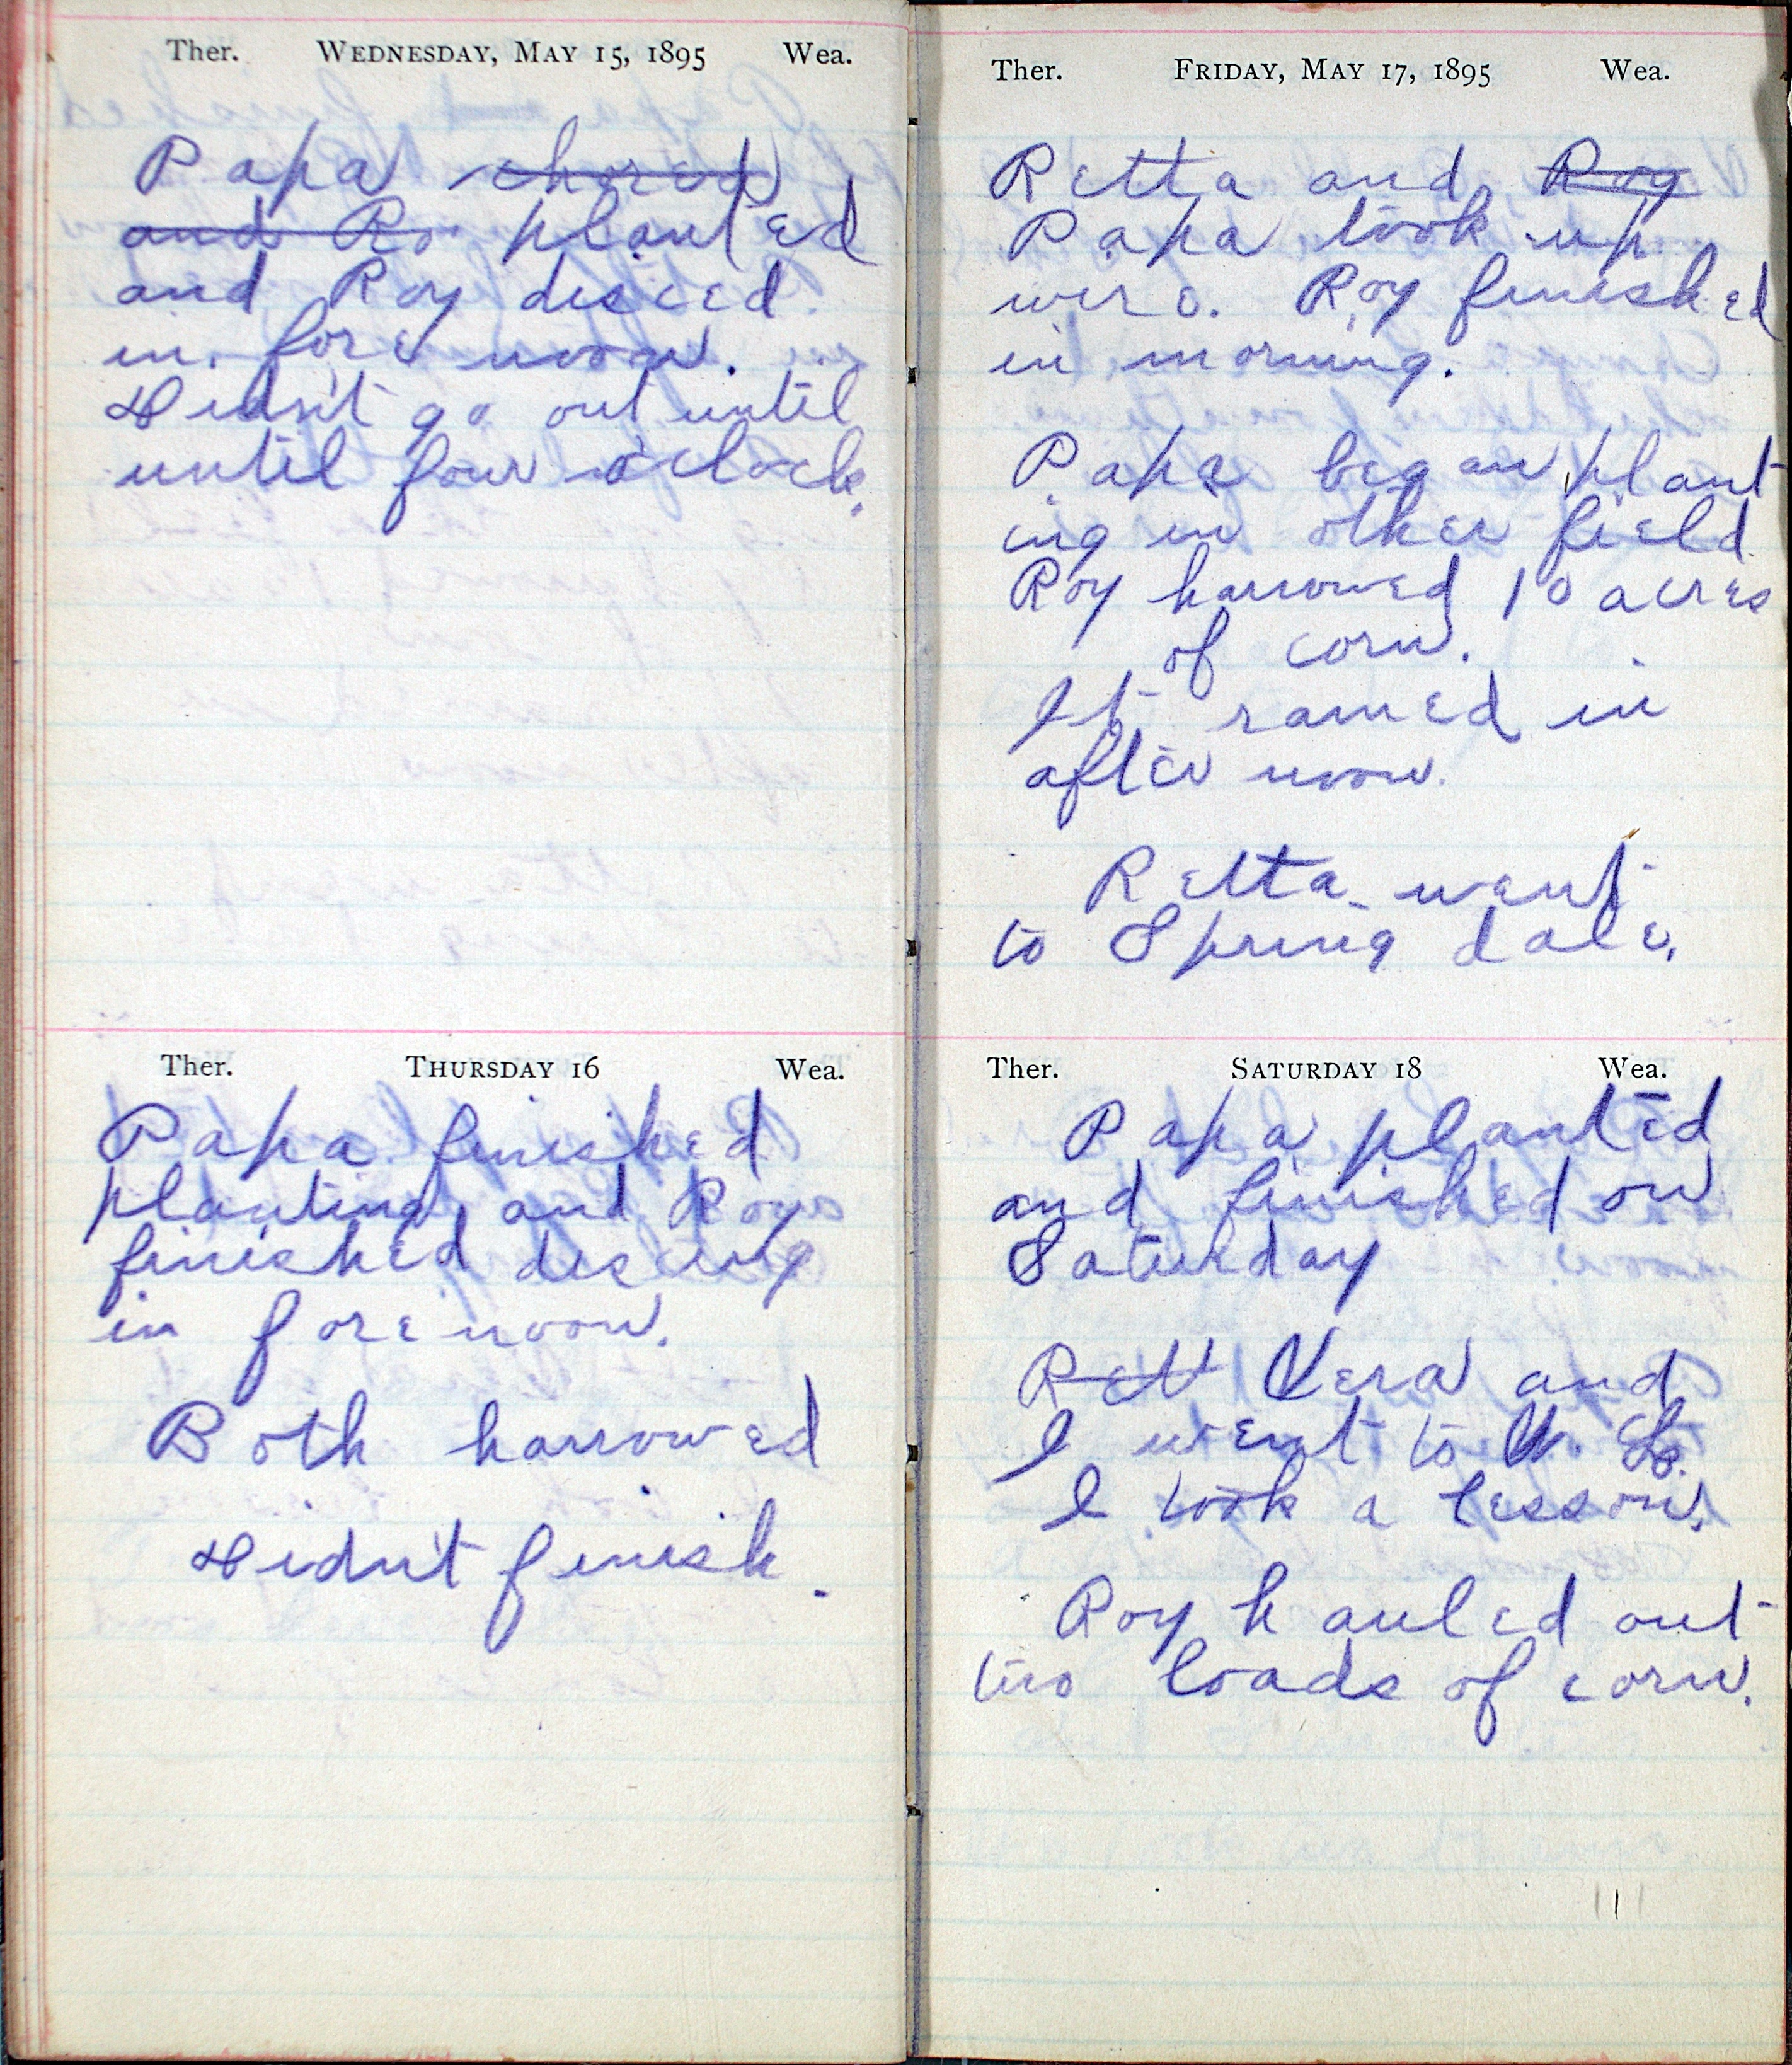 Ther. Wednesday, May 15, 1895 Wea.
Papa chored
and Ro planted
and Roy disced
in fore noon.
Didn't go out until
until four o'clock.
Ther. Thursday 16 Wea.
Papa finished
planting and Roy
finished discing
in fore noon.
Both harrowed
Didn't finish.
Ther. Friday, May 17, 1895 Wea.
Retta and Roy
Papa took up
wire. Roy finished
in morning.
Papa began plant
ing in other field
Roy harrowed 10 acres
of corn.
It rained in
after noon.
Retta went
to Spring dale.
Ther. Saturday 18 Wea.
Papa planted
and finished on
Saturday
Rett Vera and
I went to
I took a lesson.
Roy hauled out
two loads of corn.